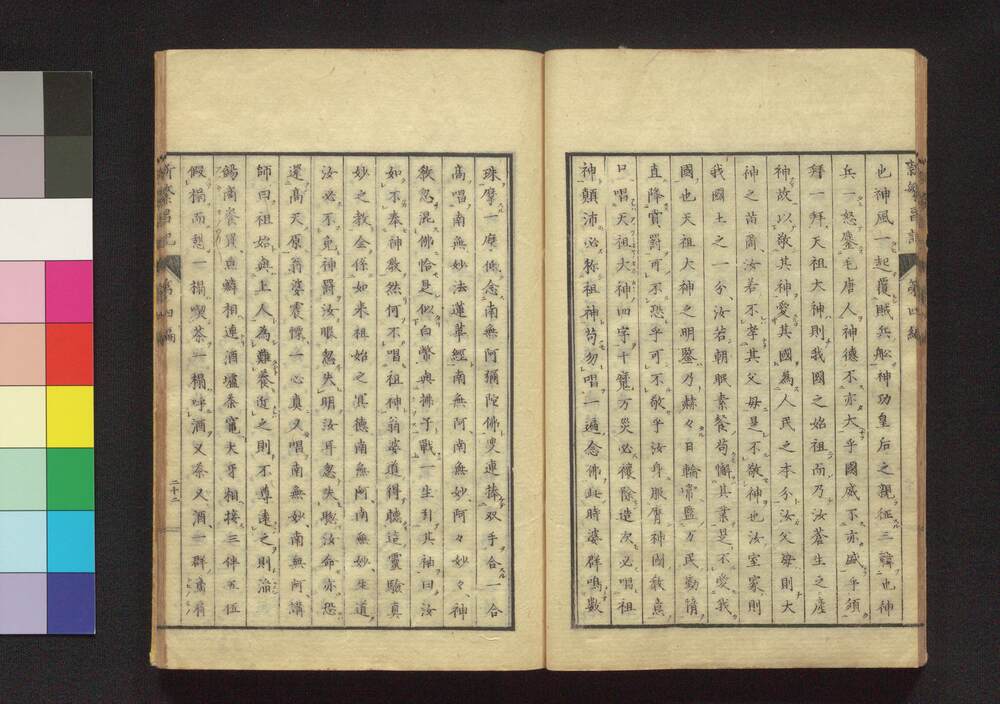 也神風一起覆賊兵船神功皇后之親征三韓也神
兵一怒鏖毛唐人神德不亦大乎國威不亦盛乎須
拜一拜天祖大神則我國之始祖而乃汝蒼生之産
神故以敬其神愛其國為人民之本分汝父母則大
神之苗裔汝若不孝其父母是不敬神也汝室家則
我國土之一分汝若朝眠素餐苟懈其業是不愛我
國也天祖大神之明鑒乃赫々日輪常監万民勤惰
直降賞罰可不恐乎可不敬乎汝身服膺神國敎憙
口唱天祖大神四字千魔万災必穰除造次必唱祖
神顛沛必称祖神苟勿唱一遍念佛此時婆群鳴數
珠摩一摩低念南無阿彌陀佛叟連捧双手合一合
高唱南無妙法蓮華經南無阿南無妙阿々妙々神
敎忽混佛恰是似白幣與拂子戰一生引其袖曰汝
如不奉神敎然何不唱祖神翁婆道得聽這靈驗真
妙之教金係如来祖始之冥德南無阿南無妙生道
汝必不免神罰汝眼忽失明汝耳忽失聰汝命亦恐
還高天原翁婆震慄一心真又唱南無妙南無阿講
師曰祖始與上人為難養近之則不尊遠之則淪
餳商餈買魚鱗相連酒壚茶竈犬牙相接三伴五伍
假榻而憩一榻喫茶一榻呼酒又茶又酒一群肩肩
新繁昌記 第四編
二十二